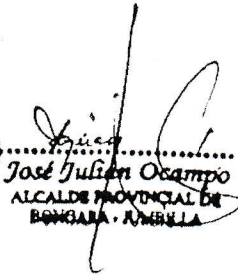 José Julián Ocampo
ALCALDE PROVINCIAL DE
BONGARA - JUMBILLA